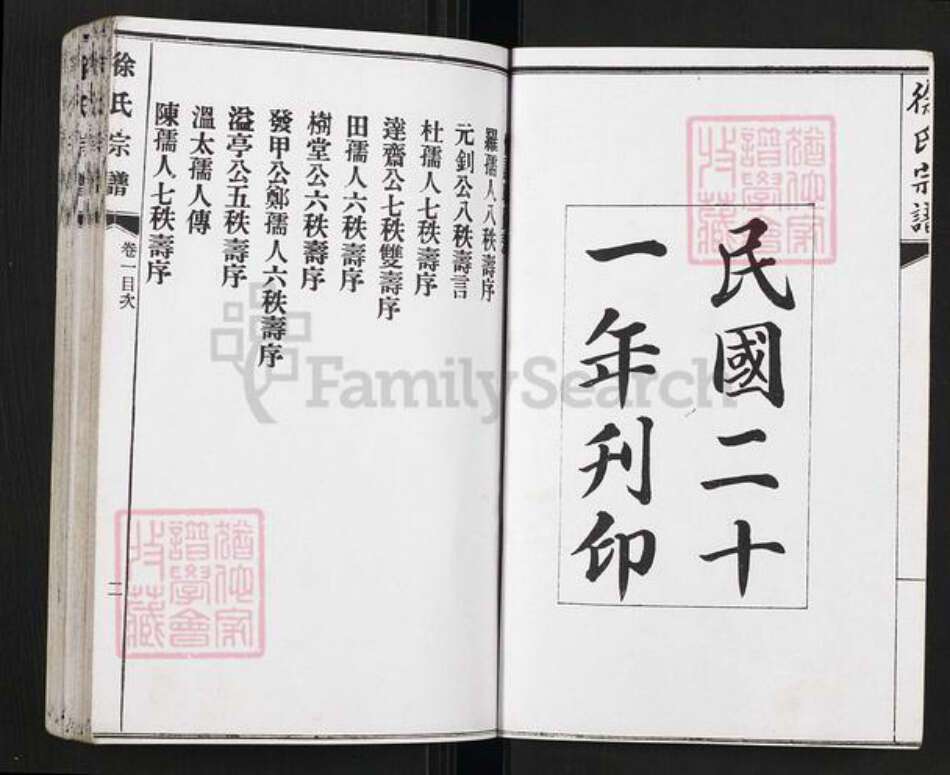 徐氏宗譜
民國二十
一年刊印
羅孺人八秩壽序
元釗公八秩壽言
杜孺人七秩壽序
達齋公七秩雙壽序
田孺人六秩壽序
樹堂公六秩壽序
發甲公鄭孺人六秩壽序
溢亭公五秩壽序
溫太孺人傳
陳孺人七秩壽序
徐氏宗譜
卷一目次
二
譜學會
收藏
譜學會
收藏
FamilySearch